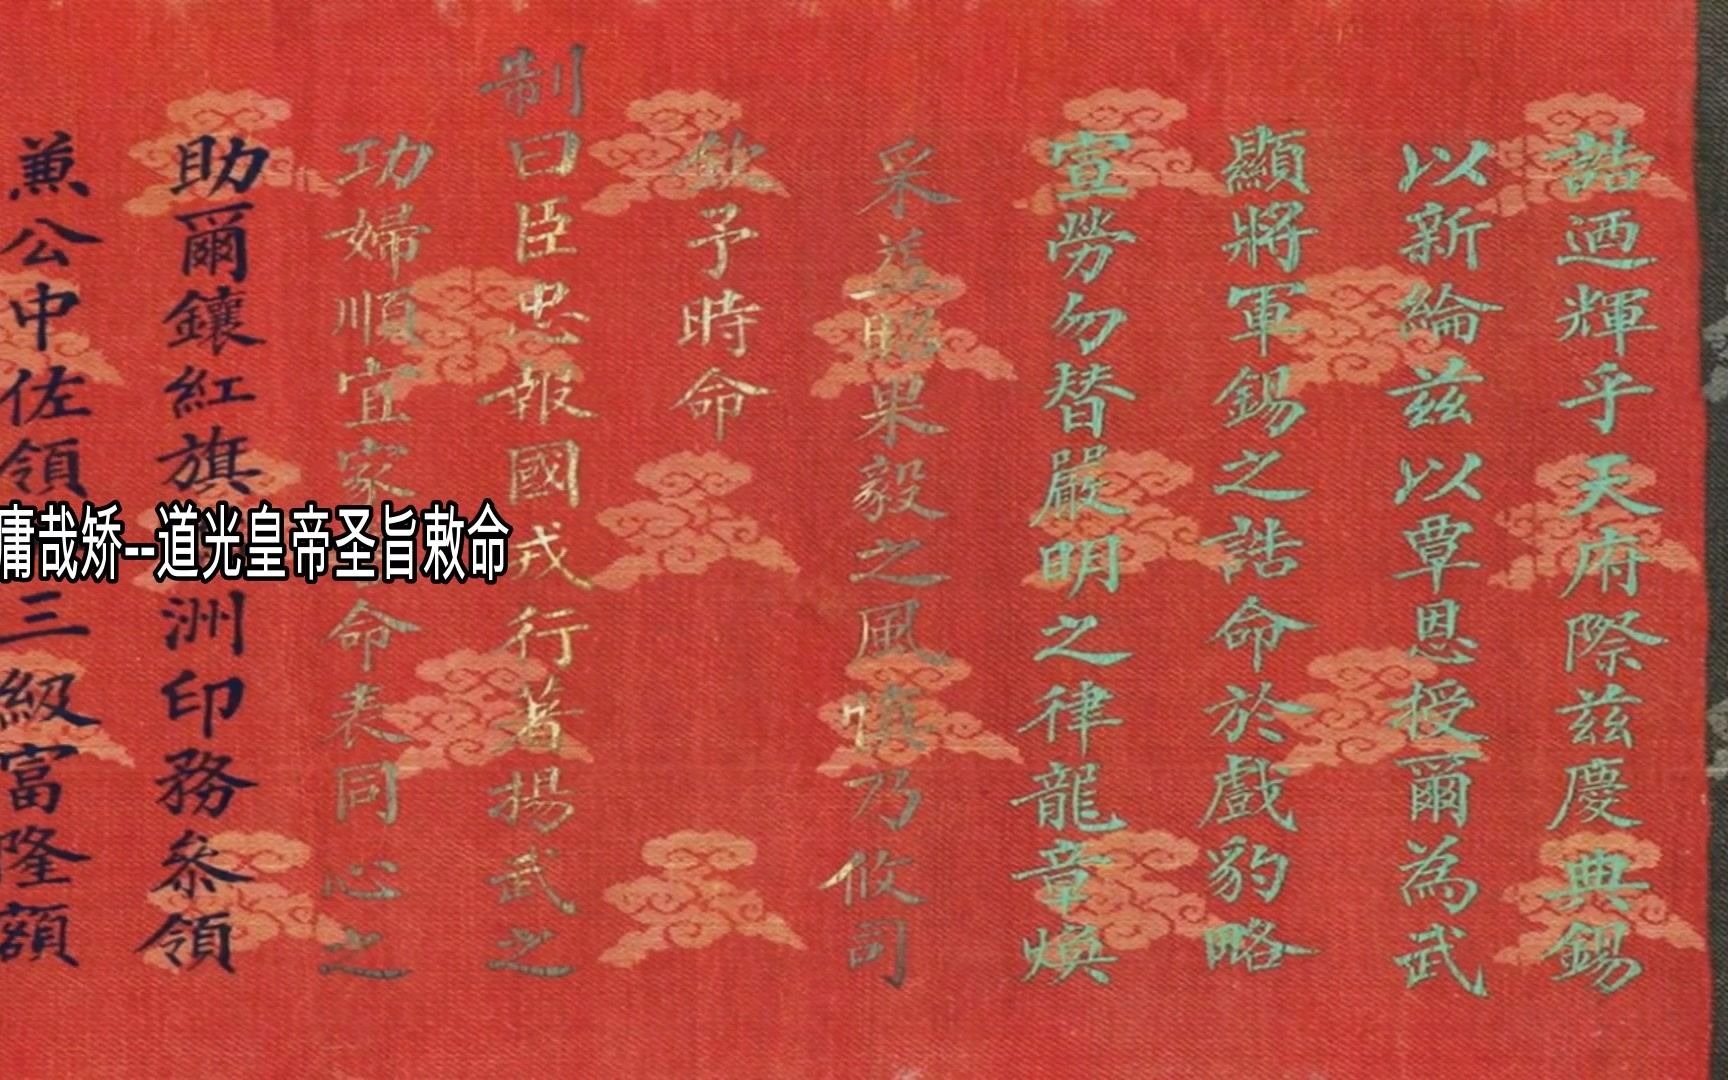 誥迺輝乎天府際兹慶典錫
以新綸兹以覃恩授爾為武
顯將軍錫之誥命於戲豹略
宣勞勿替嚴明之律龍章煥
采益昭果毅之風慎乃攸司
欽予時命
制曰臣忠報國戎行著揚武之
功婦順宜家命表同心之
助爾鑲紅旗洲印務參領
兼公中佐領三級富隆額
庸哉矫--道光皇帝圣旨敕命